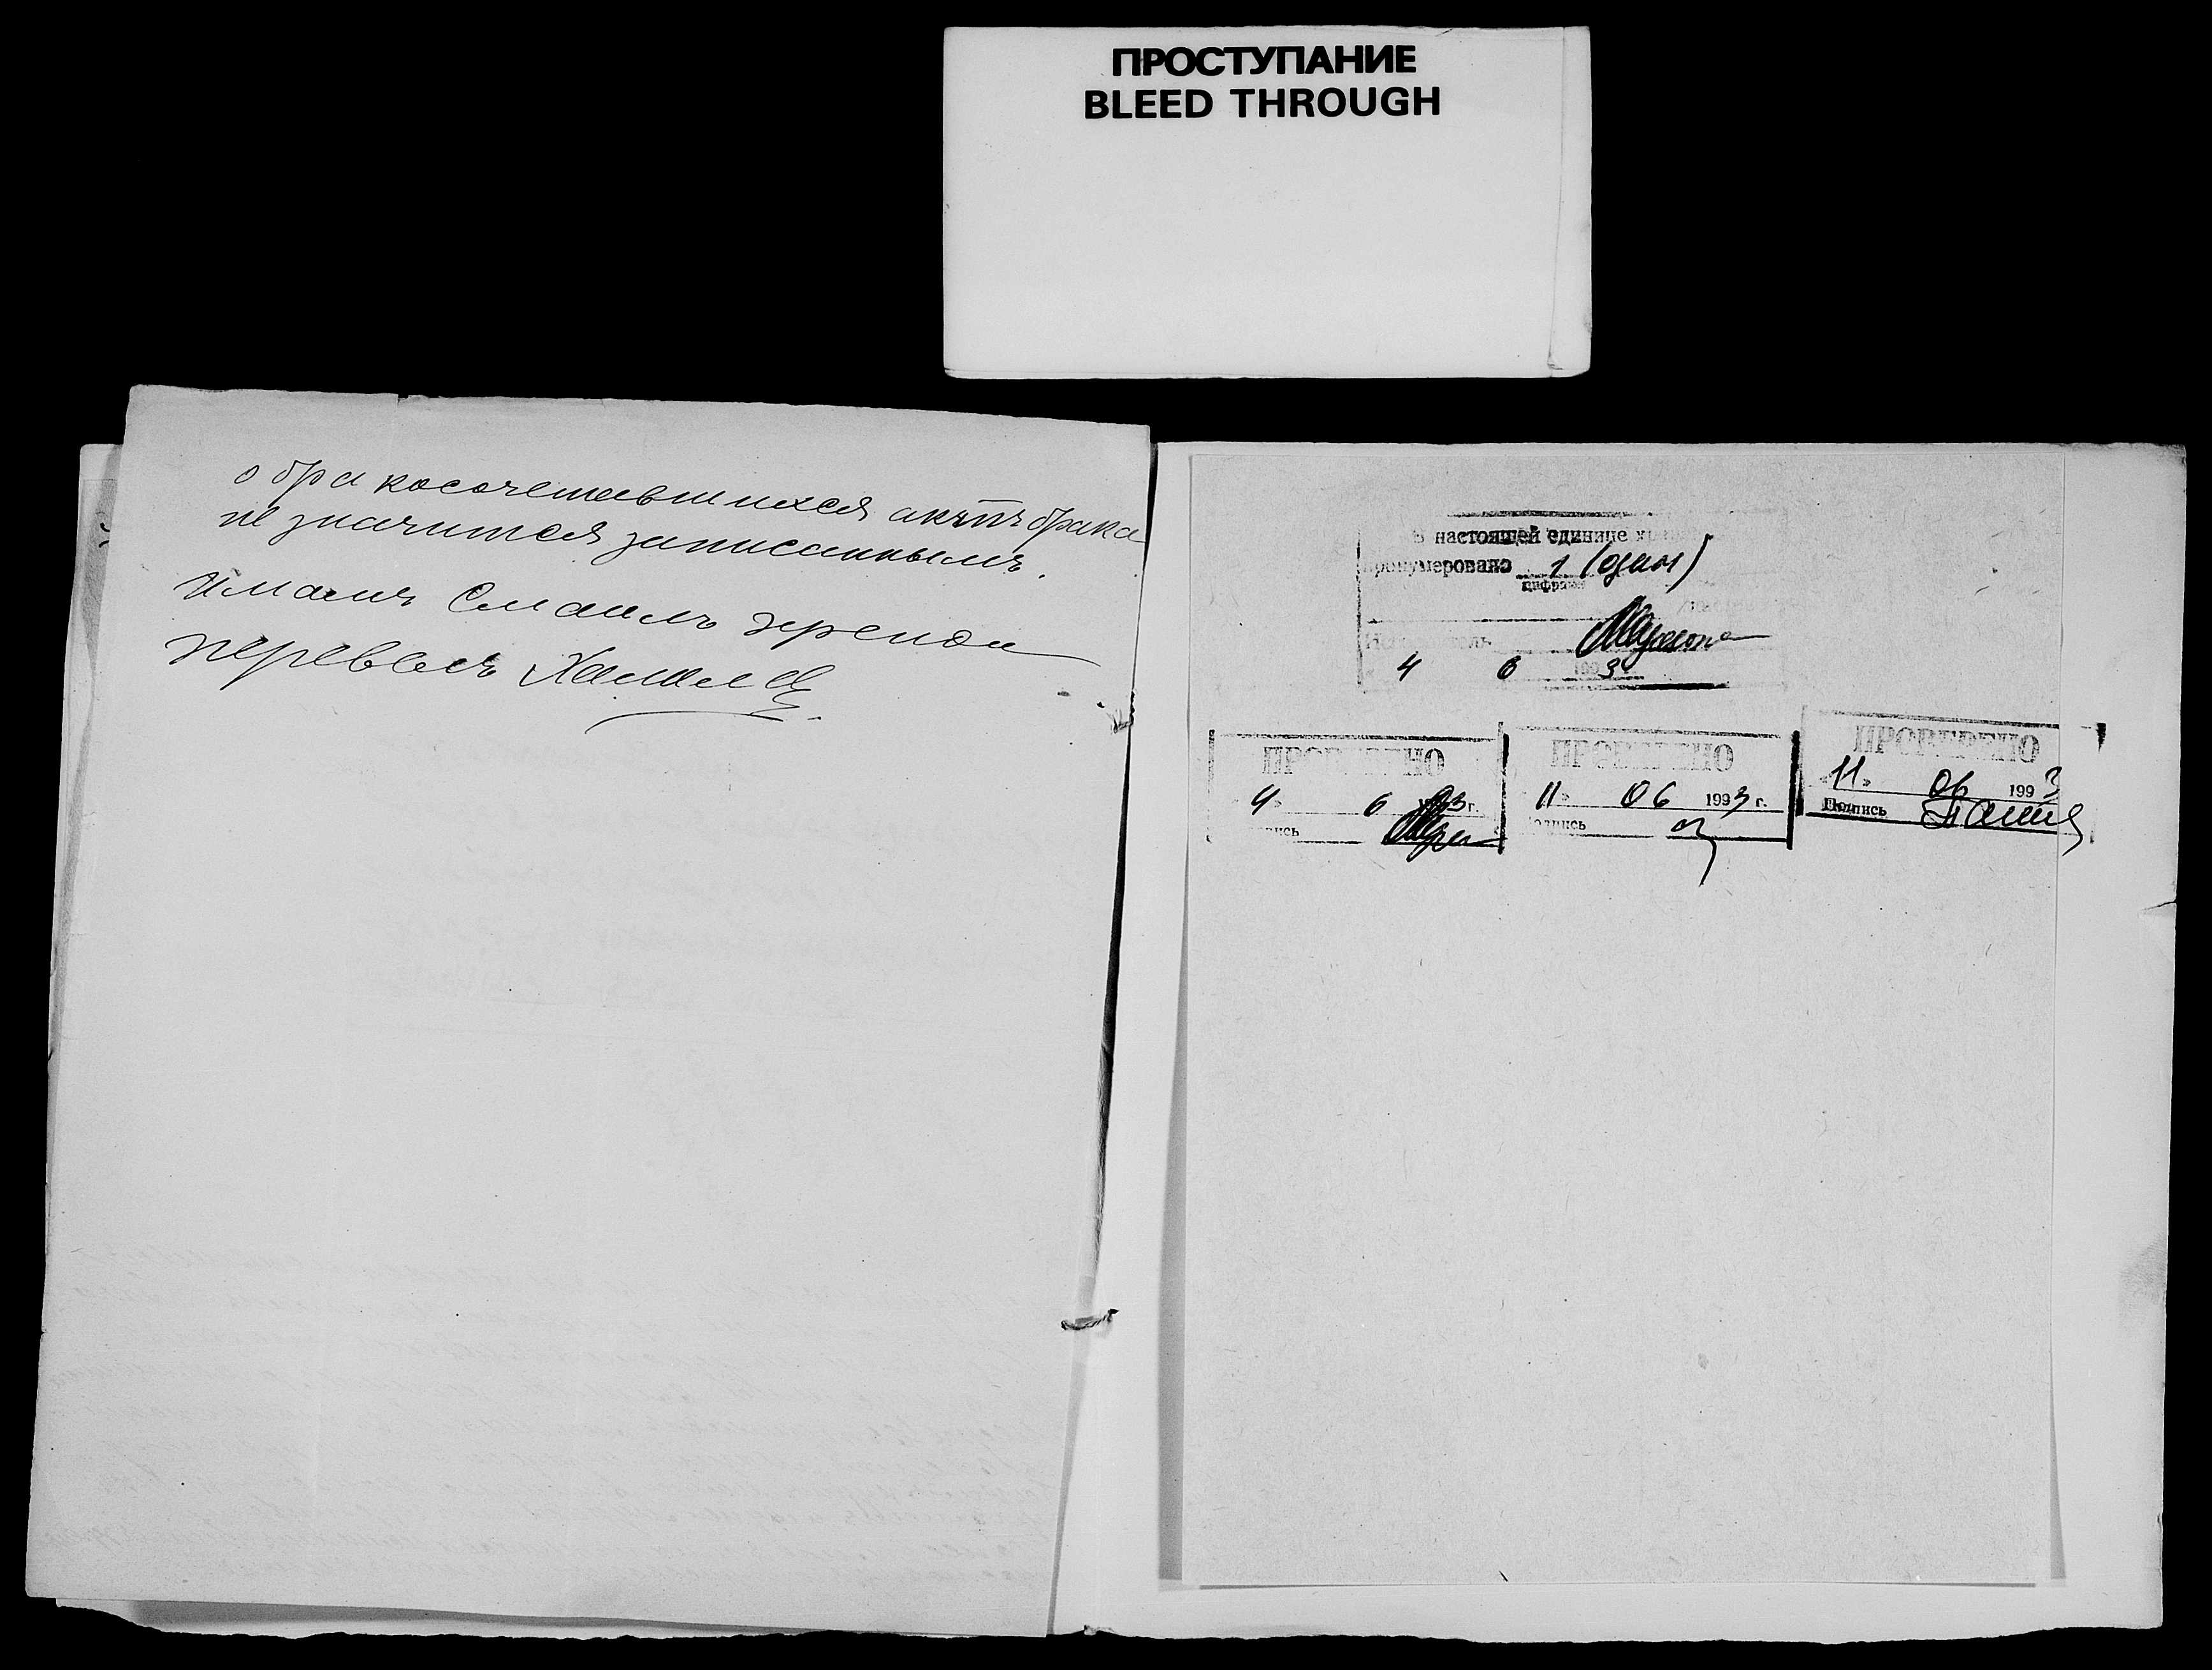 ПРОСТУПАНИЕ
BLEED THROUGH
о бракосочетавшихся актъ брака
не значится записаннымъ.
Имамъ Смаилъ эфенди
перевелъ
В настоящей единице
пронумеровано 1 (один)
цифрами
4 6 1993
ПРОВЕРЕНО
4» 6 1993 г.
Подпись
ПРОВЕРЕНО
11» 06 1993 г.
Подпись
ПРОВЕРЕНО
«11» 06 1993
Подпись